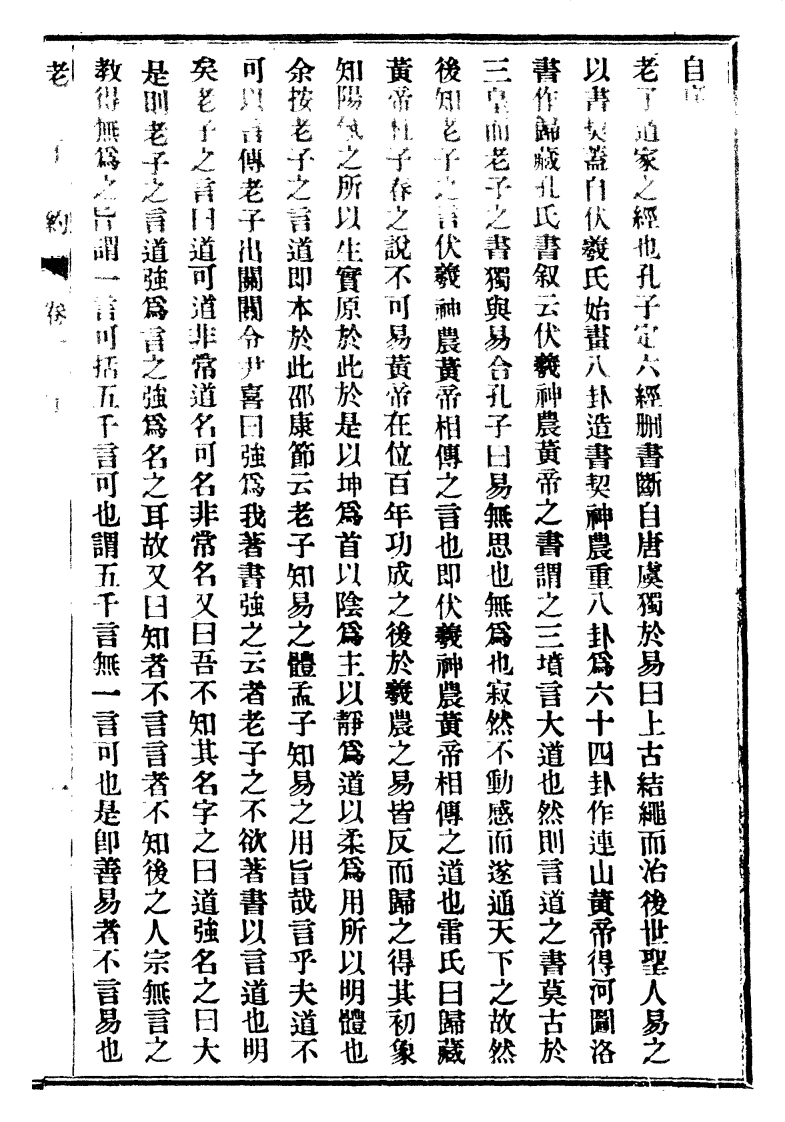 自序
老子道家之經也孔子定六經刪書斷自唐虞獨於易曰上古結繩而治後世聖人易之
以書契蓋自伏羲氏始畫八卦造書契神農重八卦爲六十四卦作連山黃帝得河圖洛
書作歸藏孔氏書叙云伏羲神農黃帝之書謂之三墳言大道也然則言道之書莫古於
三皇而老子之書獨與易合孔子曰易無思也無爲也寂然不動感而遂通天下之故然
後知老子之言伏羲神農黃帝相傳之言也即伏羲神農黃帝相傳之道也雷氏曰歸藏
黃帝杜子春之說不可易黃帝在位百年功成之後於羲農之易皆反而歸之得其初象
知陽氣之所以生實原於此於是以坤爲首以陰爲主以靜爲道以柔爲用所以明體也
余按老子之言道即本於此邵康節云老子知易之體孟子知易之用旨哉言乎夫道不
可以言傳老子出關關令尹喜曰強爲我著書強之云者老子之不欲著書以言道也明
矣老子之言曰道可道非常道名可名非常名又曰吾不知其名字之曰道強名之曰大
是則老子之言道強爲言之強爲名之耳故又曰知者不言言者不知後之人宗無言之
教得無爲之旨謂一言可括五千言可也謂五千言無一言可也是即善易者不言易也
老子約 卷一